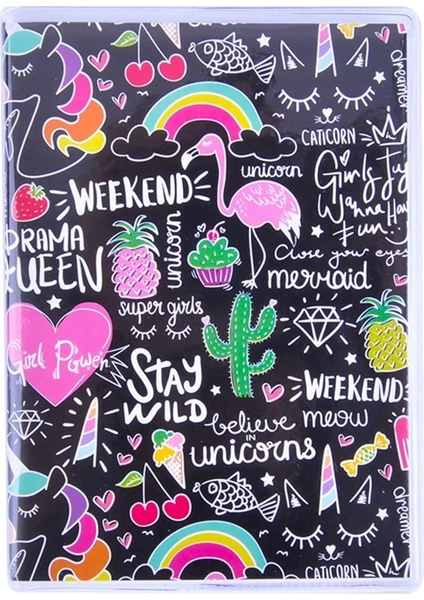 dreamer
CATICORN
unicorn
WEEKEND
Girls Ju
Wanna Ha
Fun
DRAMA
QUEEN
unicorn
Close your eyes
mermaid
super girls
Girl Power
STAY
WILD
WEEKEND
believe
IN
unicorns
meow
dreamer
CATICORN